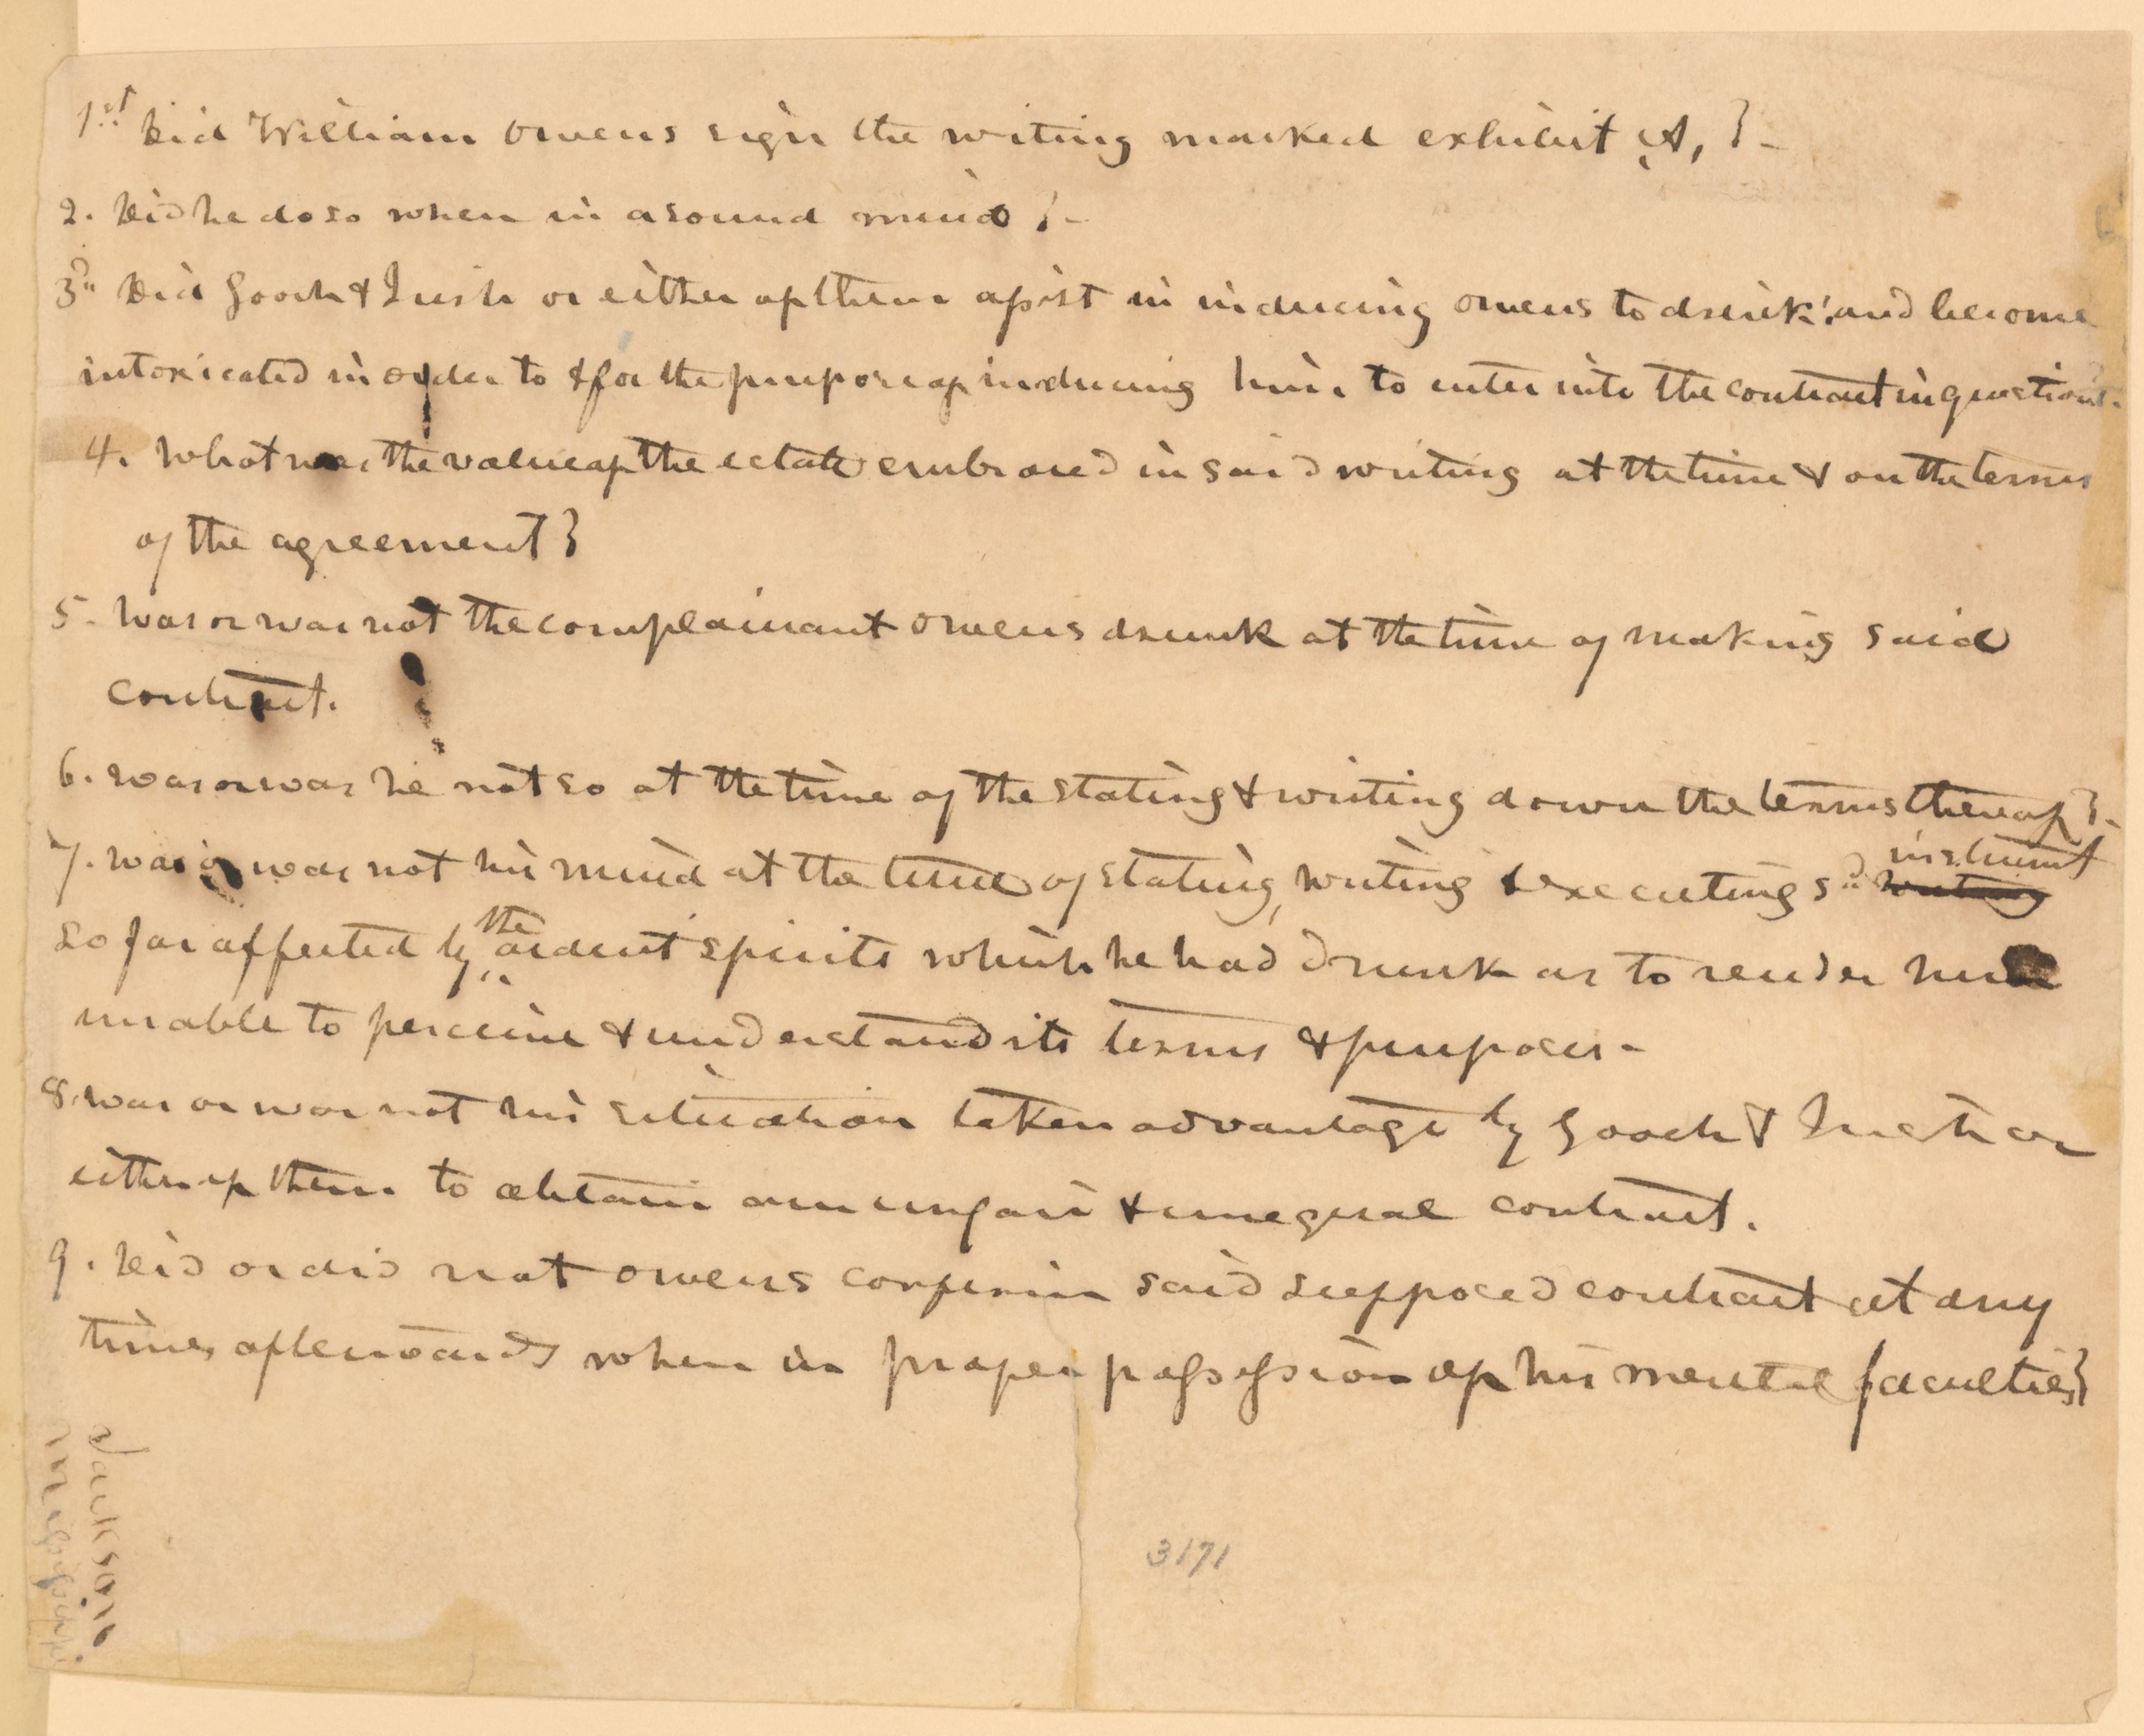 1st Did William Owens sign the writing marked exhibit A, ?-
2. Did he do so when in a sound mind ?-
3d. Did Gooch & Lush or either of them assist in inducing Owens to drink and become
intoxicated in order to & for the purpose of inducing him to enter into the contract in question?-
4. What was the value of the estate embraced in said writing at the time & on the terms
of the agreement?
5. Was or was not the complainant Owens drunk at the time of making said
contract.
6. was or was he not so at the time of the stating & writing down the terms thereof?-
instrumt
7. was or was not his mind at the time of stating, writing & executing sd. writing
the
so far affected by ardent spirits which he had drunk as to render him
unable to perceive & understand its terms & purposes-
8. was or was not his situation taken advantage by Gooch & Lush or
either of them to obtain an unfair & unequal contract.
9. Did or did not Owens confirm said supposed contract at any
time, afterwards when in proper possession of his mental faculties?
Jackson
Mississippi
3171